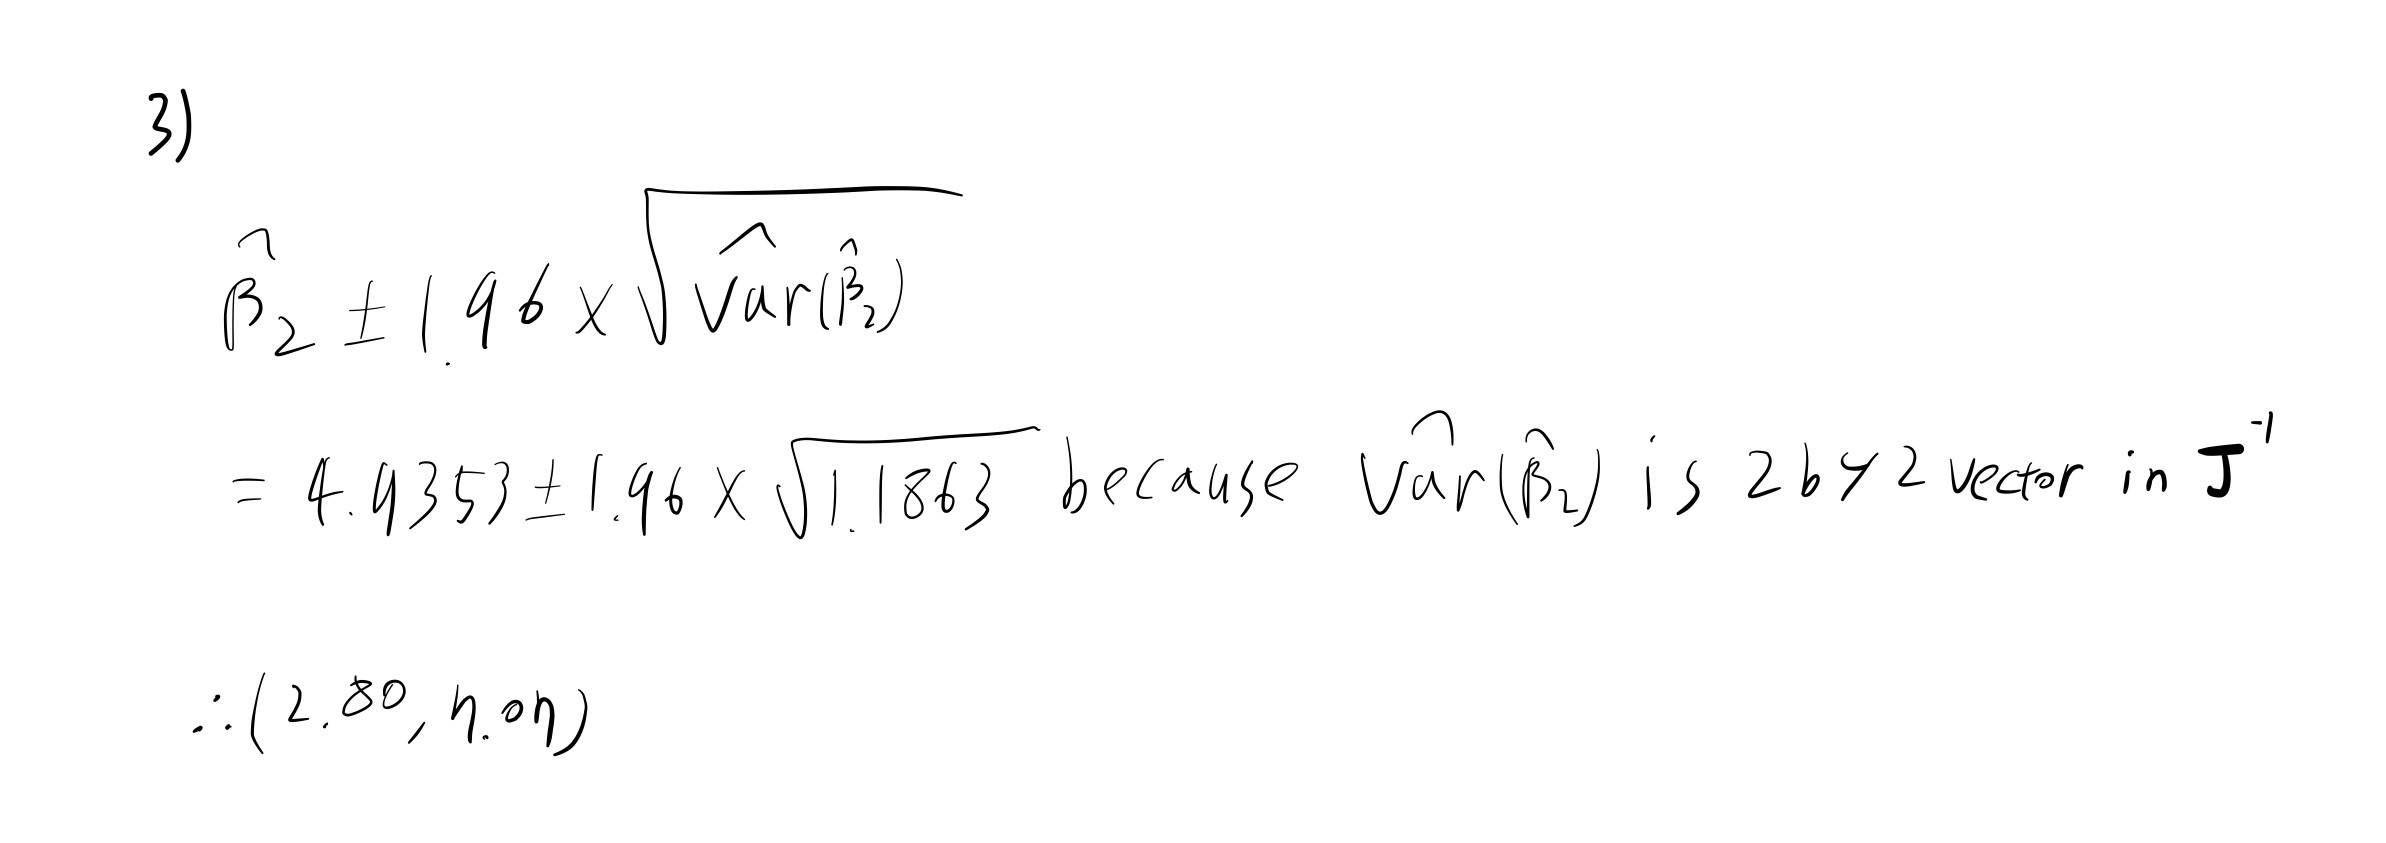 3)
β̂₂ ± 1.96 × √V̂ar(β̂₂)
= 4.9353 ± 1.96 × √1.1863 because V̂ar(β̂₂) is 2 by 2 vector in J⁻¹
∴ (2.80, 7.07)